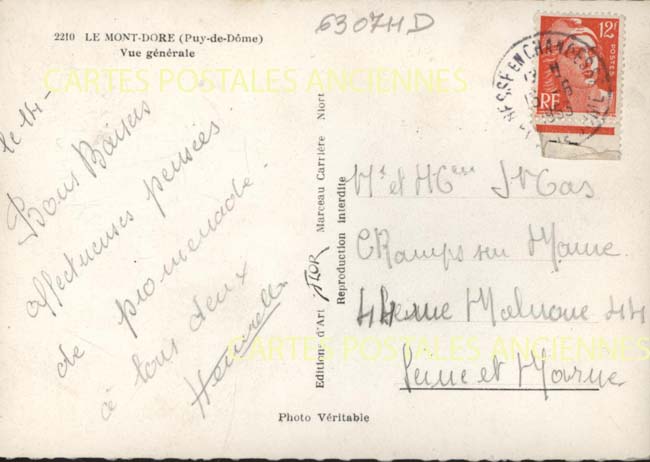 2210 LE MONT-DORE (Puy-de-Dôme)
Vue générale
6307HD
CARTES POSTALES ANCIENNES
le 14-
Bons Baisers
affectueuses pensées
de promenade.
à tous deux
Editions d'Art FLOR Marceau Carrière Niort
Reproduction interdite
12F
POSTES
RF
Mr et Mme
Champs sur Marne
44 44
Seine et Marne
CARTES POSTALES ANCIENNES
Photo Véritable